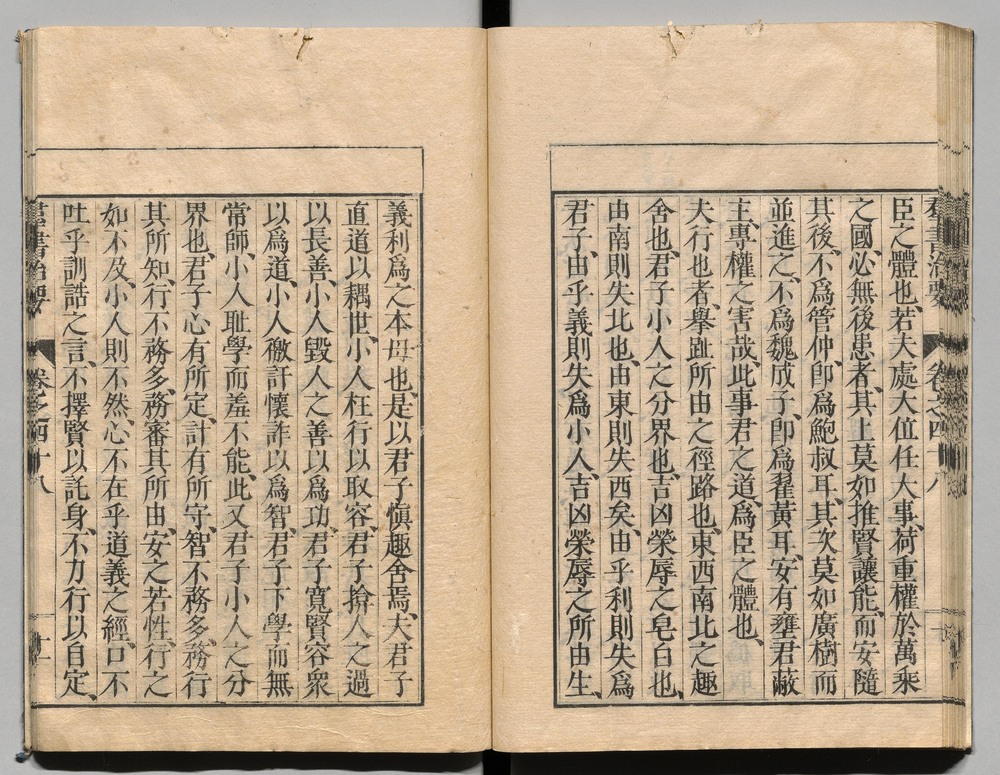 臣之體也、若夫處大位任大事、荷重權於萬乘
之國、必無後患者、其上莫如推賢讓能、而安隨
其後、不爲管仲、卽爲鮑叔耳、其次莫如廣樹而
並進之、不爲魏成子、卽爲翟黃耳、安有壅君蔽
主、專權之害哉、此事君之道、爲臣之體也、
夫行也者、舉趾所由之徑路也、東西南北之趣
舍也、君子小人之分界也、吉凶榮辱之皂白也、
由南則失北也、由東則失西矣、由乎利則失爲
君子、由乎義則失爲小人、吉凶榮辱之所由生、
群書治要 卷之四十八 十
義利爲之本母也、是以君子愼趣舍焉、夫君子
直道以耦世、小人枉行以取容、君子揜人之過
以長善、小人毀人之善以爲功、君子寬賢容衆
以爲道、小人徼訐懷詐以爲智、君子下學而無
常師、小人恥學而羞不能、此又君子小人之分
界也、君子心有所定、計有所守、智不務多、務行
其所知、行不務多、務審其所由、安之若性、行之
如不及、小人則不然、心不在乎道義之經、口不
吐乎訓誥之言、不擇賢以託身、不力行以自定、
羣書治要 卷之四十八 十一